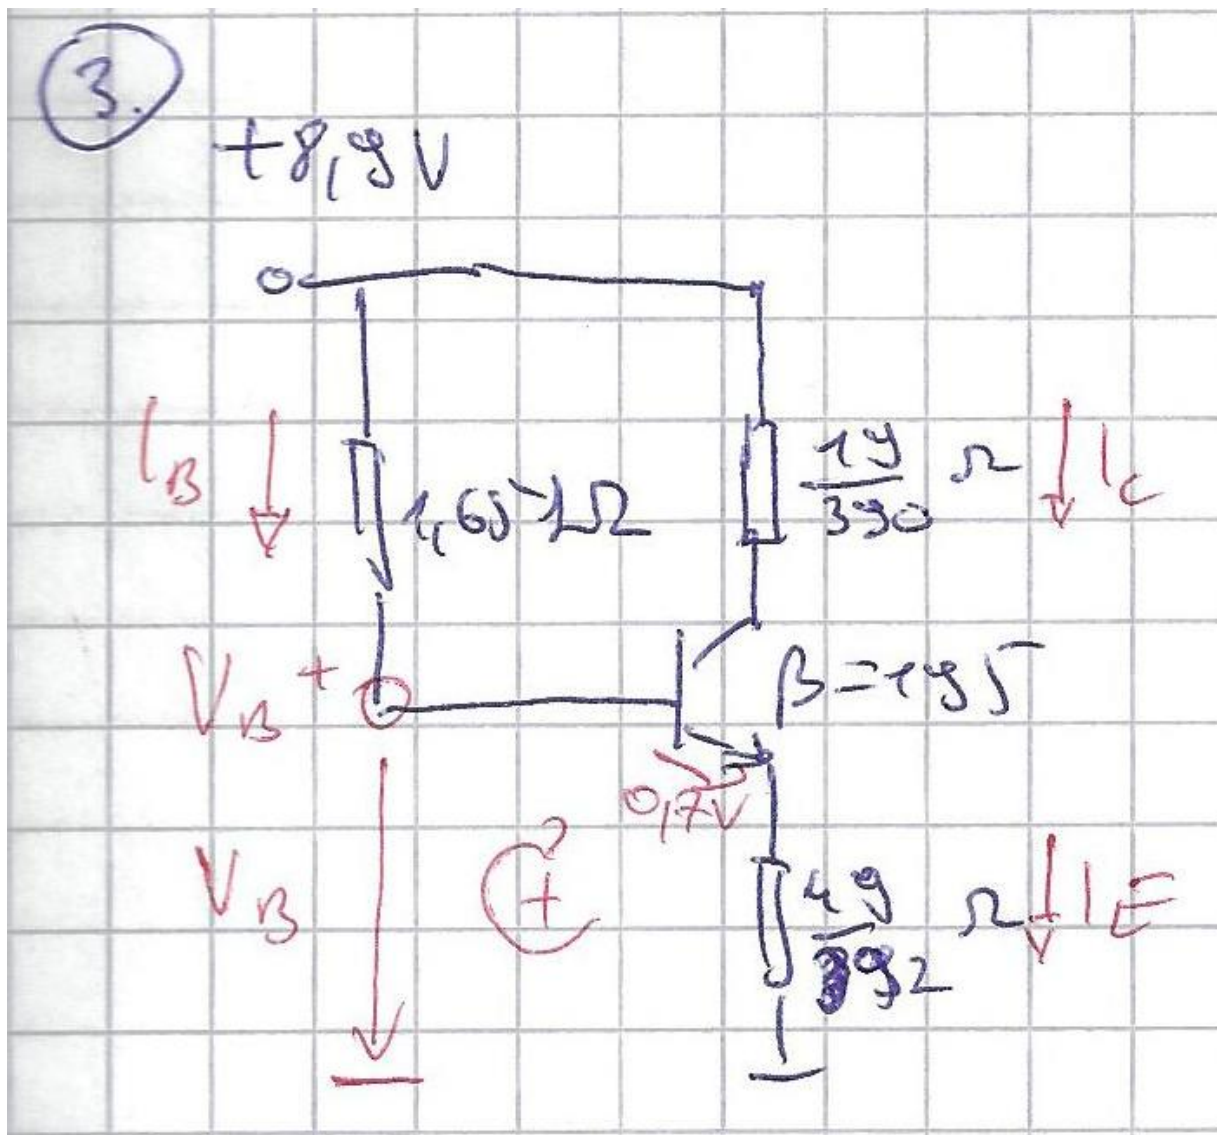 3.
+8,9 V
I_B
1,65
Ω
19/390 Ω
I_C
V_B +
β=195
0,7V
V_B
+
19/392 Ω
I_E